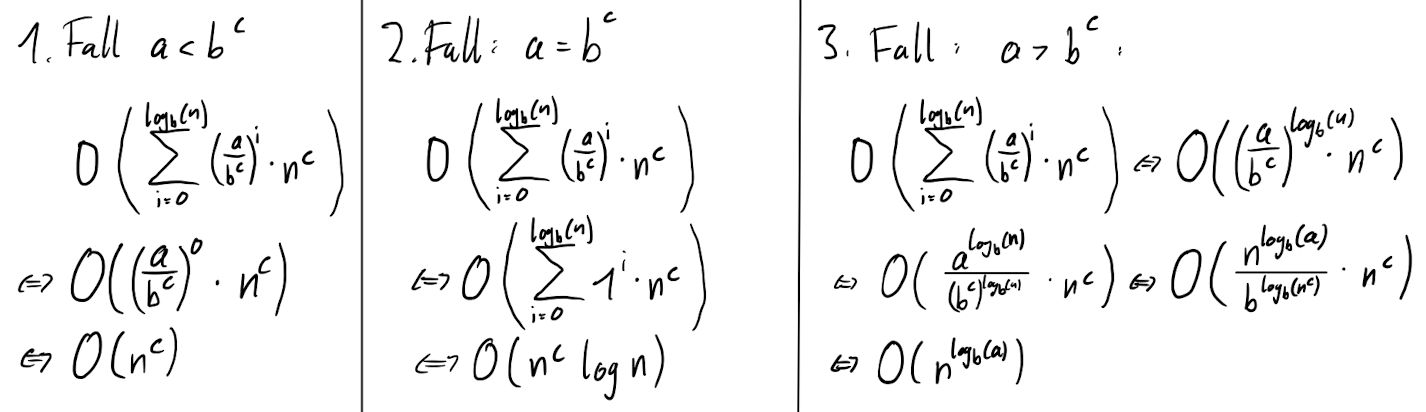 1. Fall a < b^c
O( ∑_{i=0}^{log_b(n)} (a/b^c)^i · n^c )
⇔ O( (a/b^c)^0 · n^c )
⇔ O(n^c)
2. Fall: a = b^c
O( ∑_{i=0}^{log_b(n)} (a/b^c)^i · n^c )
⇔ O( ∑_{i=0}^{log_b(n)} 1^i · n^c )
⇔ O(n^c log n)
3. Fall: a > b^c:
O( ∑_{i=0}^{log_b(n)} (a/b^c)^i · n^c ) ⇔ O( (a/b^c)^{log_b(n)} · n^c )
⇔ O( a^{log_b(n)} / (b^c)^{log_b(n)} · n^c ) ⇔ O( n^{log_b(a)} / b^{log_b(n^c)} · n^c )
⇔ O(n^{log_b(a)})